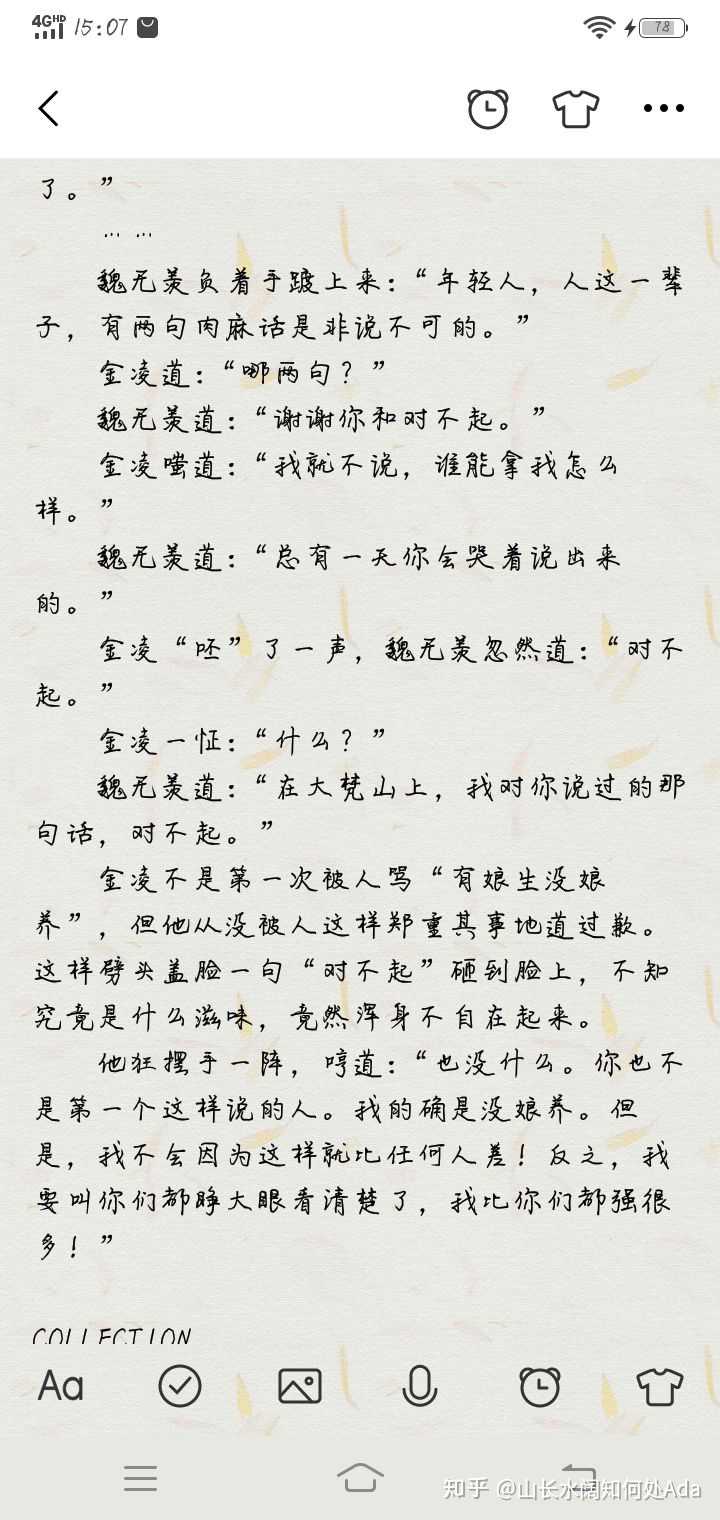 4GHD 15:07 78
了。”
… …
魏无羡负着手踱上来：“年轻人，人这一辈
子，有两句肉麻话是非说不可的。”
金凌道：“哪两句？”
魏无羡道：“谢谢你和对不起。”
金凌嗤道：“我就不说，谁能拿我怎么
样。”
魏无羡道：“总有一天你会哭着说出来
的。”
金凌“呸”了一声，魏无羡忽然道：“对不
起。”
金凌一怔：“什么？”
魏无羡道：“在大梵山上，我对你说过的那
句话，对不起。”
金凌不是第一次被人骂“有娘生没娘
养”，但他从没被人这样郑重其事地道过歉。
这样劈头盖脸一句“对不起”砸到脸上，不知
究竟是什么滋味，竟然浑身不自在起来。
他狂摆手一阵，哼道：“也没什么。你也不
是第一个这样说的人。我的确是没娘养。但
是，我不会因为这样就比任何人差！反之，我
要叫你们都睁大眼看清楚了，我比你们都强很
多！”
COLLECTION
Aa
知乎 @山长水阔知何处Ada